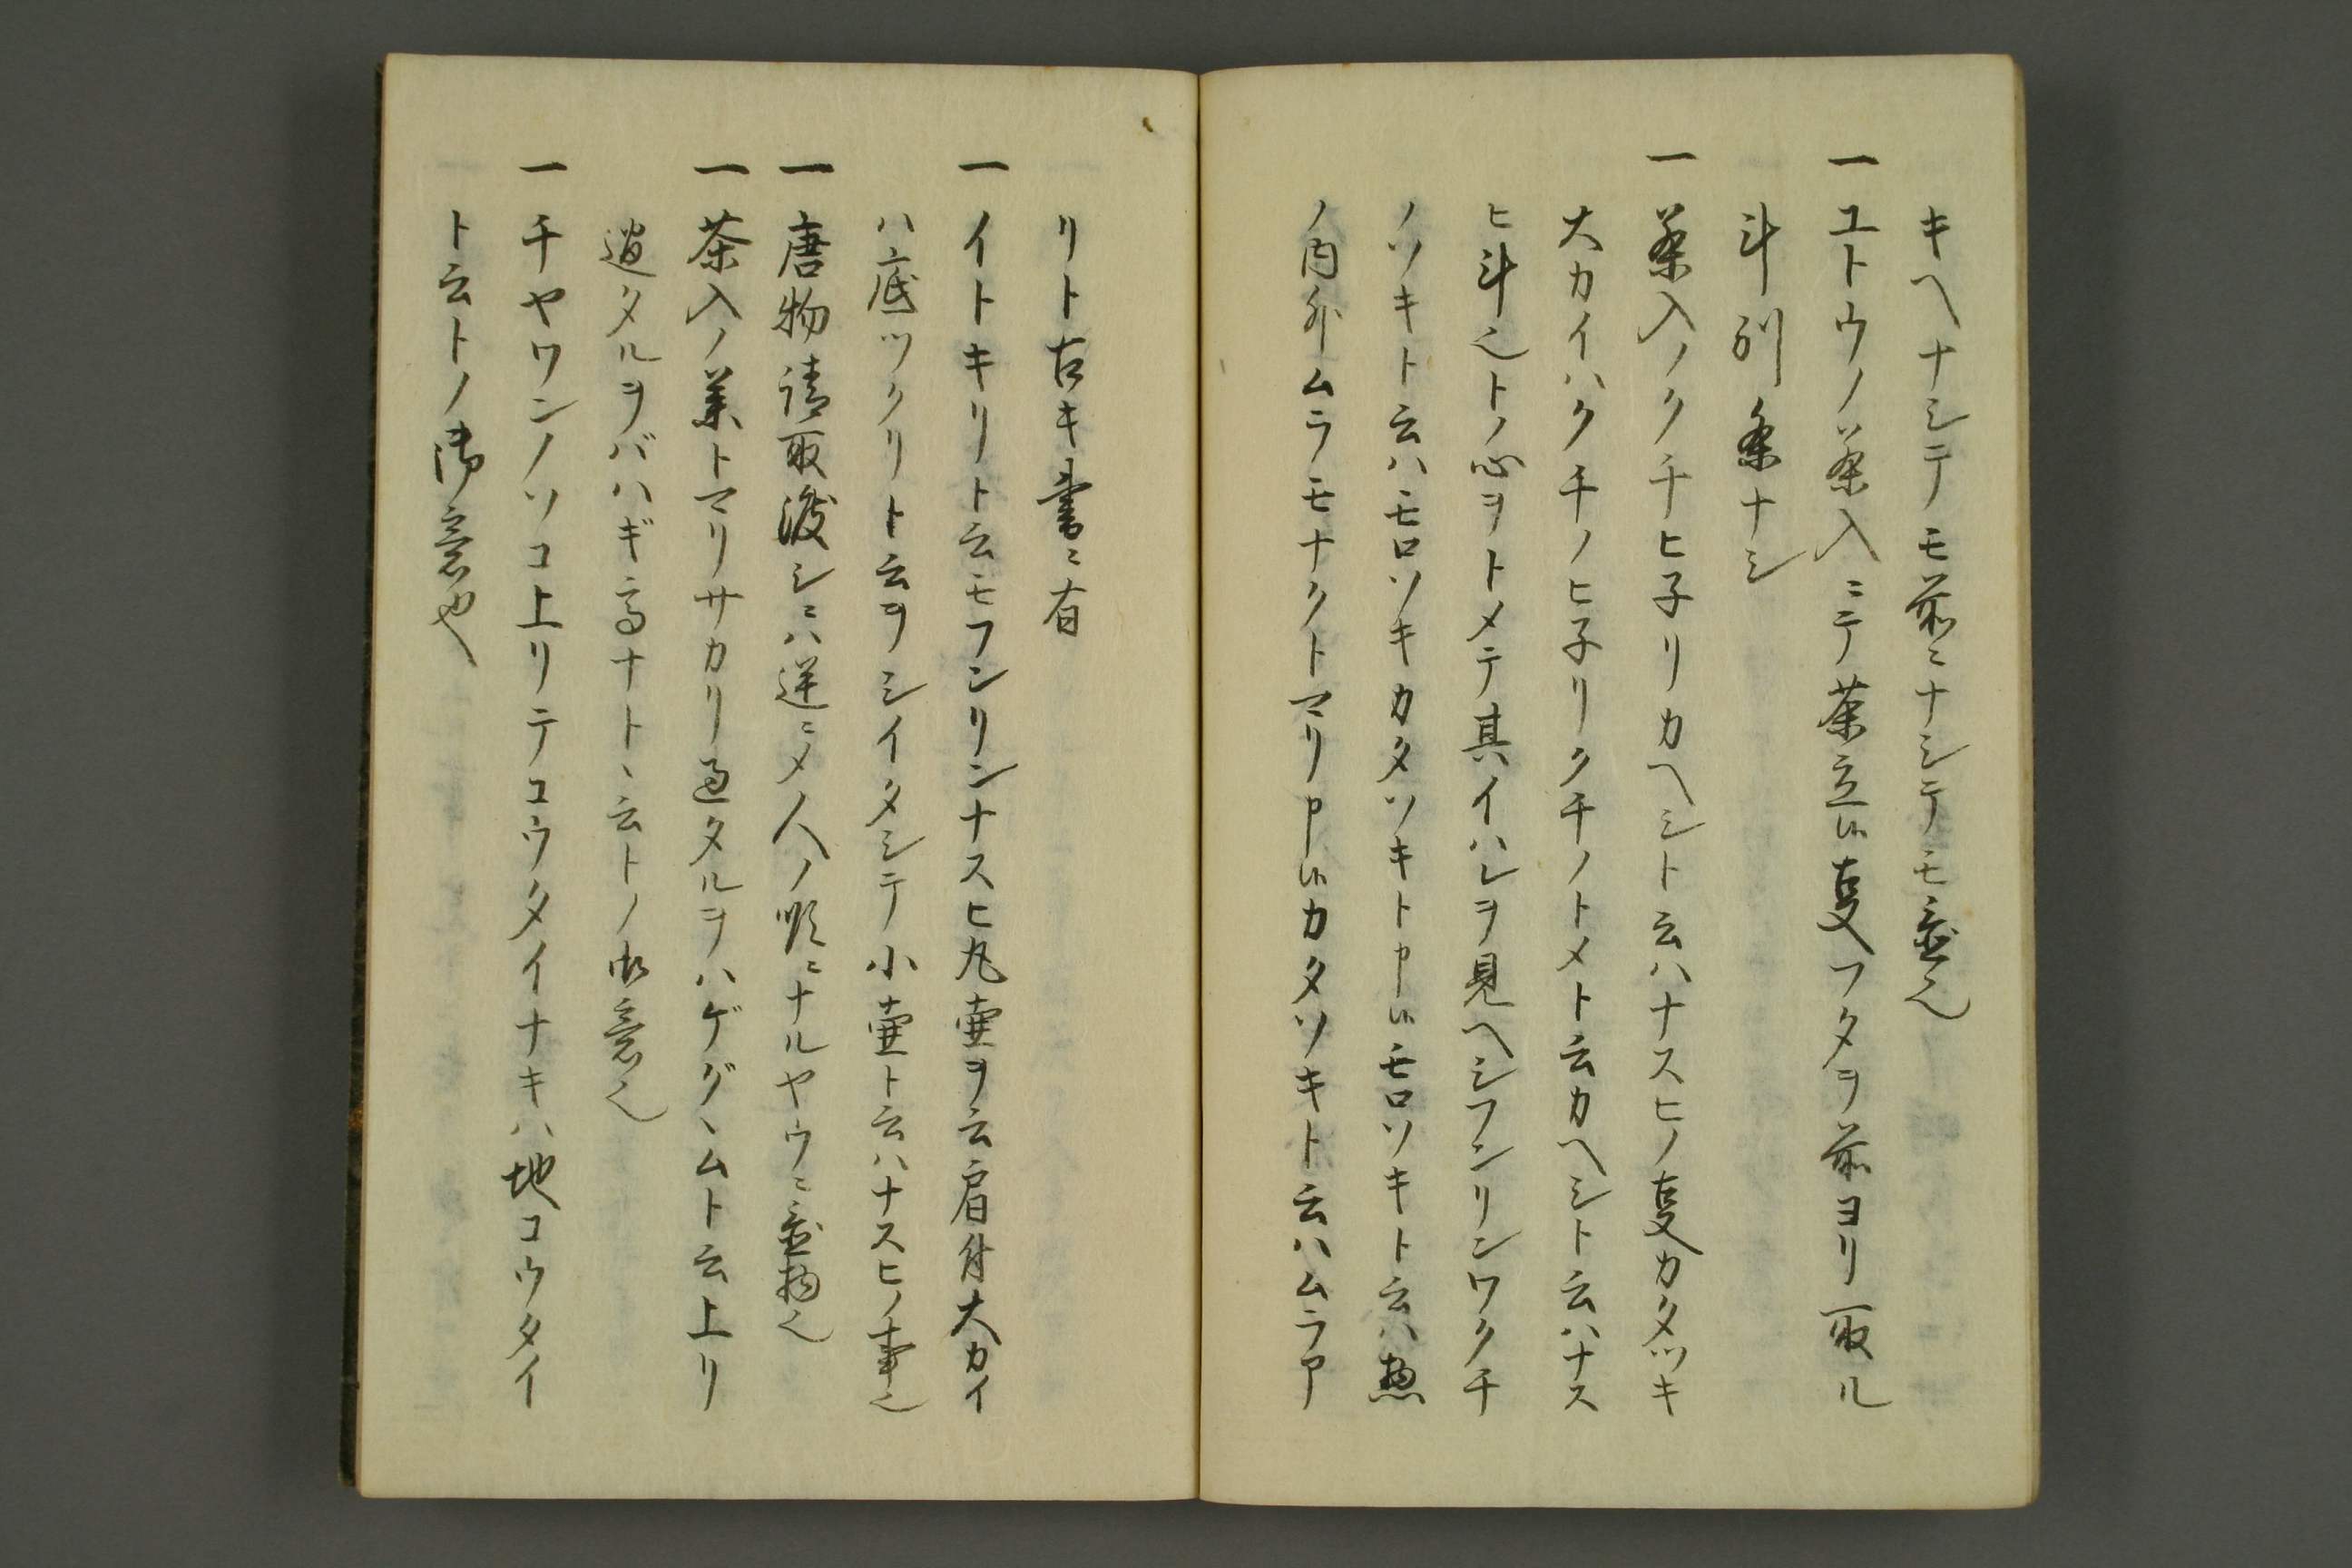 キヘナシテモ前ニナシテモ置也
一エトウノ茶入ニテ茶立候夏フタヲ前ヨリ取ル
斗別条ナシ
一茶入ノクチヒ子リカヘシト云ハナスヒノ夏カタツキ
大カイハクチノヒ子リクチノトメト云カヘシト云ハナス
ヒ斗也トノ心ヲトメテ其イハレヲ見ヘシフンリンワクチ
ノソキト云ハモロソキカタソキト申候モロソキト云ハ惣
ノ内外ムラモナクトマリ申候カタソキト云ハムラア
リト古キ書ニ有
一イトキリト云モフンリンナスヒ丸壷ヲ云肩付大カイ
ハ底ツクリト云ヲシイタシテ小壷ト云ハナスヒノ事也
一唐物請取渡シニハ逆ニメ人ノ順ニナルヤウニ置物也
一茶入ノ薬トマリサカリ過タルヲハゲグヽムト云上リ
過タルヲバハギ高ナトヽ云トノ御意也
一チヤワンノソコ上リテコウタイナキハ地コウタイ
ト云トノ御意也